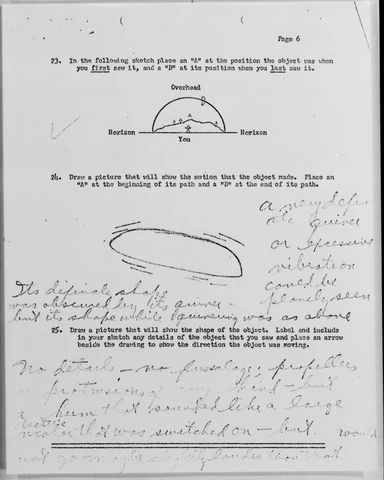 Page 6
23. In the following sketch place an "A" at the position the object was when
you first saw it, and a "B" at its position when you last saw it.
Overhead
Horizon
Horizon
You
24. Draw a picture that will show the motion that the object made. Place an
"A" at the beginning of its path and a "B" at the end of its path.
a very defin
ate quiver
or excessive
vibration
could be
planely seen
Its difinate shape
was obscured by its quiver.
but its shape while quivering was as above
25. Draw a picture that will show the shape of the object. Label and include
in your sketch any details of the object that you saw and place an arrow
beside the drawing to show the direction the object was moving.
No details - no fusselage, propellers
or protrusions of any kind - but
a hum that sounded like a large
electric
motor that was switched on - but would
not go - maybe slightly louder than that